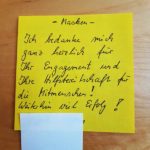 - Masken -
Ich bedanke mich
ganz herzlich für
Ihr Engagement und
Ihre Hilfsbereitschaft für
die Mitmenschen!
Weiterhin viel Erfolg!